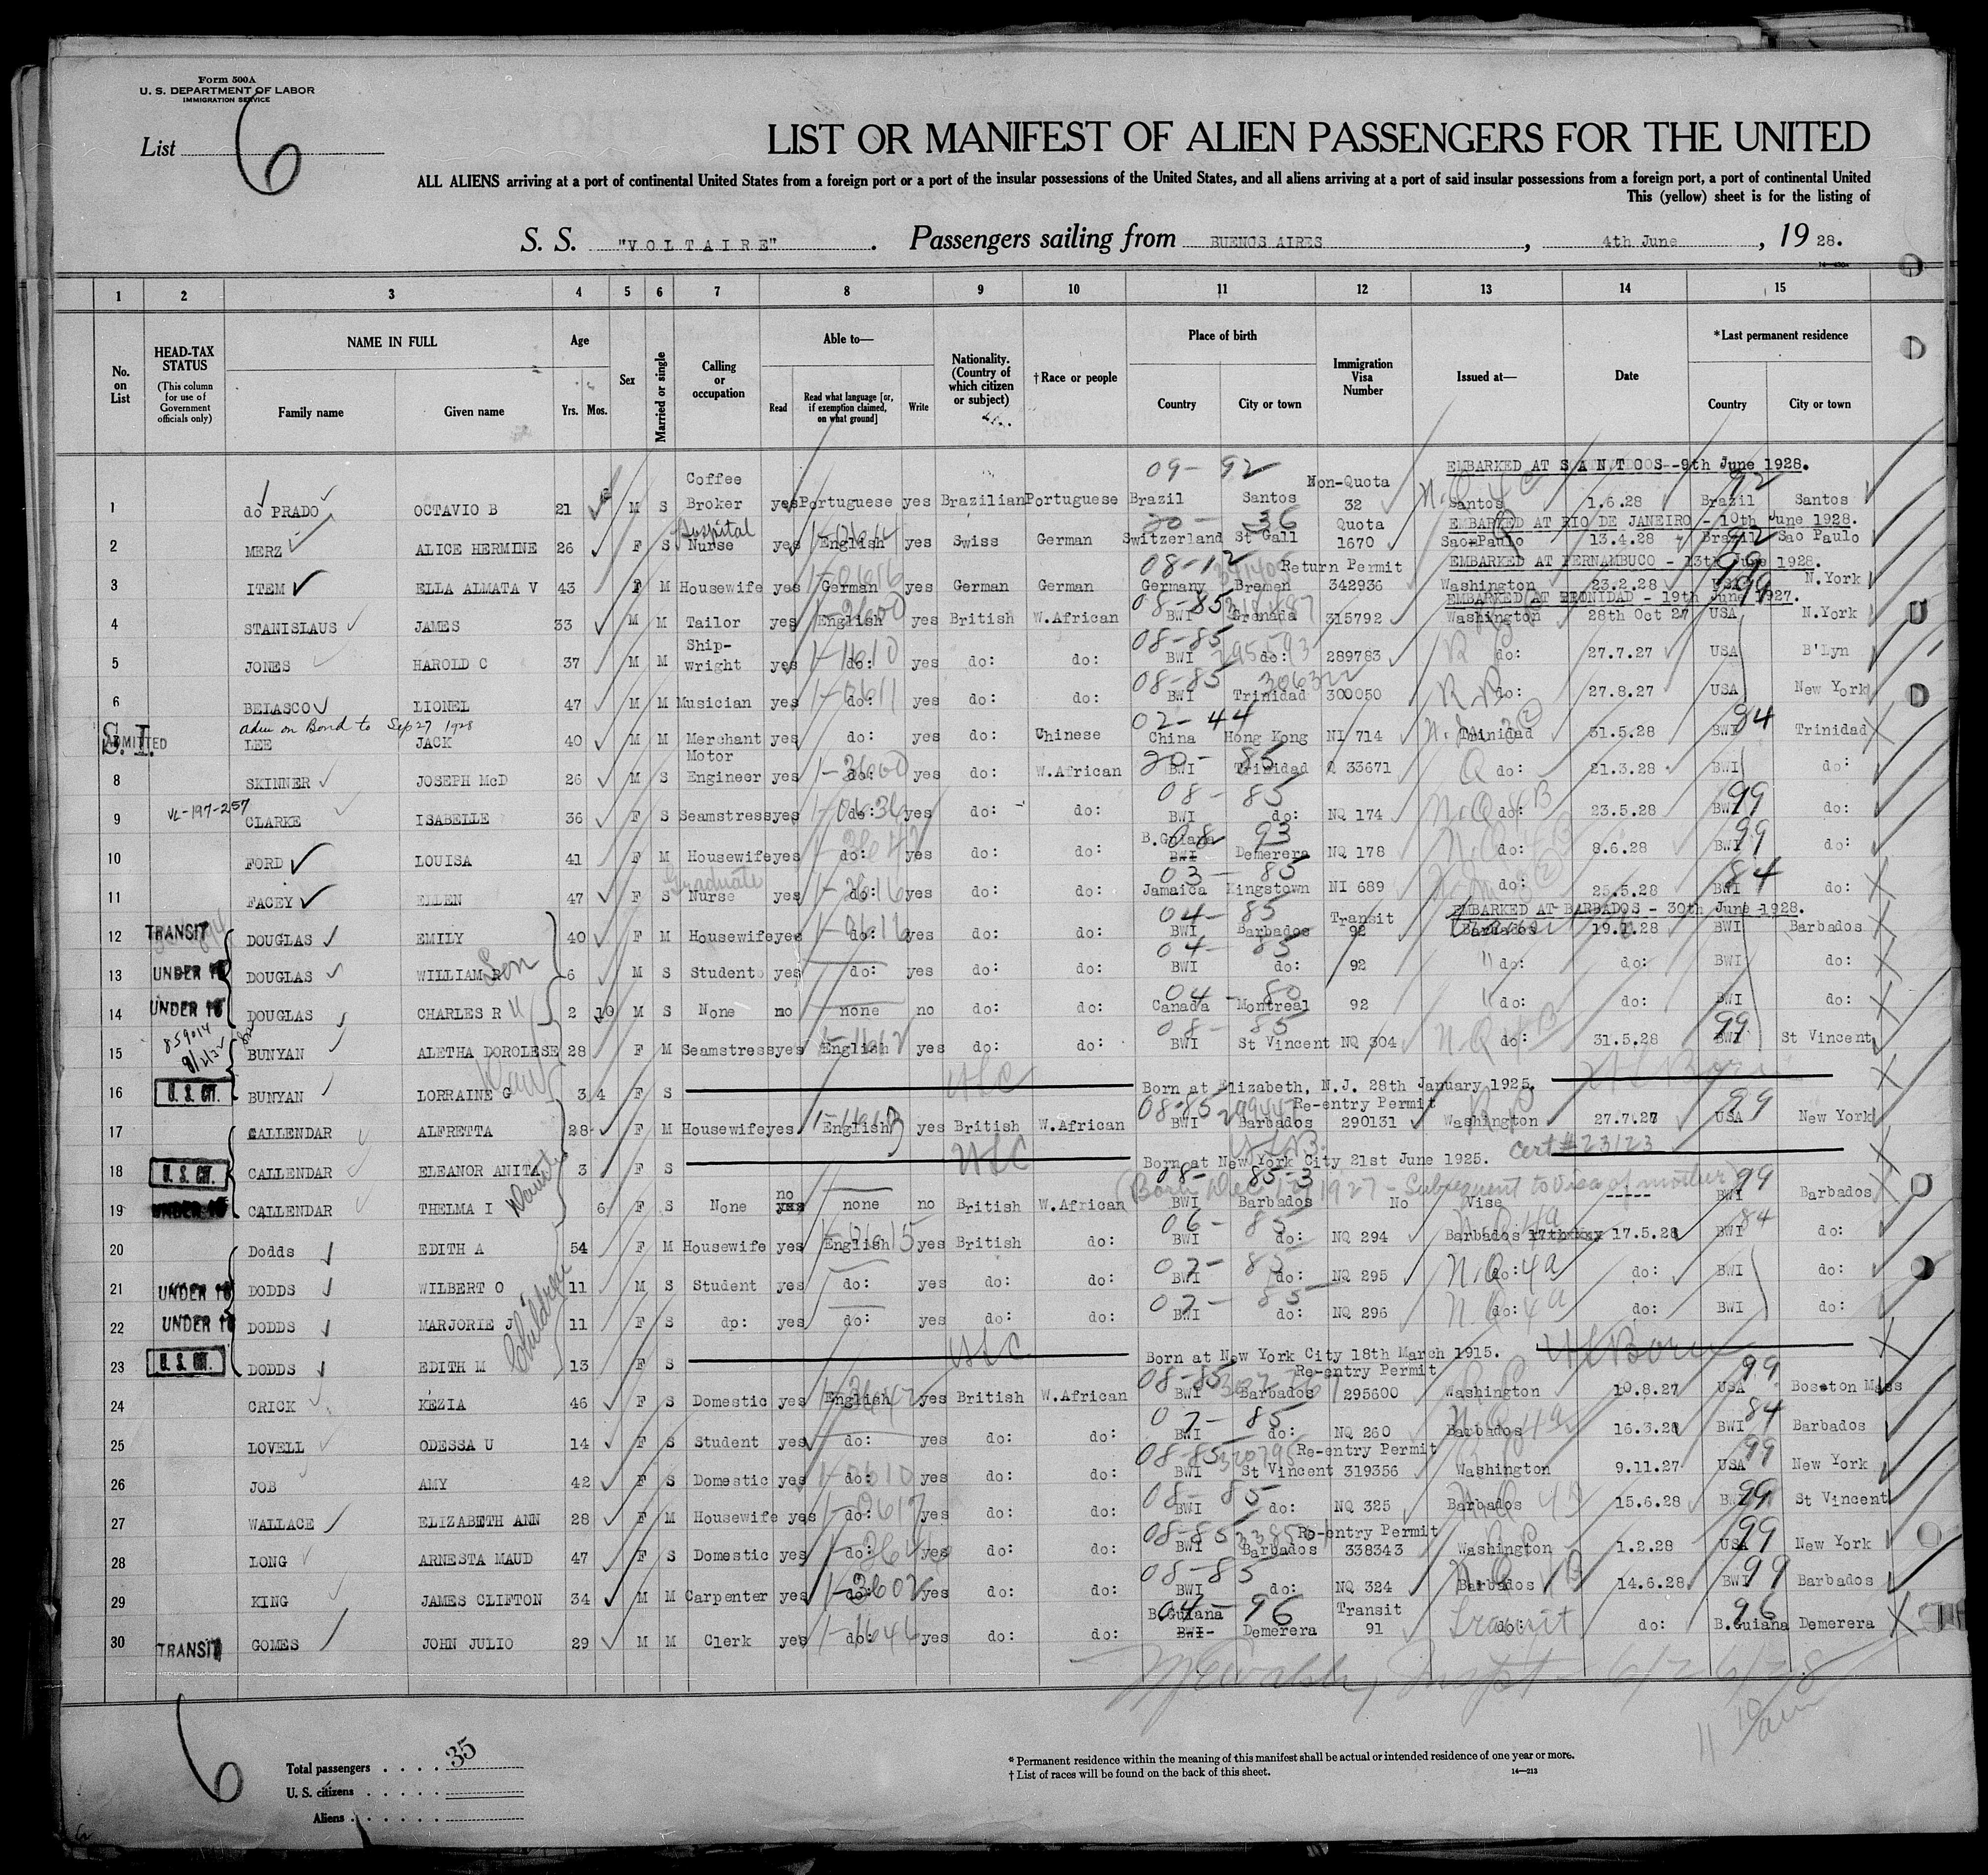 Form 500A
U. S. DEPARTMENT OF LABOR
IMMIGRATION SERVICE
List 6
LIST OR MANIFEST OF ALIEN PASSENGERS FOR THE UNITED
ALL ALIENS arriving at a port of continental United States from a foreign port or a port of the insular possessions of the United States, and all aliens arriving at a port of said insular possessions from a foreign port, a port of continental United
This (yellow) sheet is for the listing of
S. S. "VOLTAIRE" . Passengers sailing from BUENOS AIRES , 4th June , 19 28.
1 2 3 4 5 6 7 8 9 10 11 12 13 14 15
No. on List
HEAD-TAX STATUS
(This column for use of Government officials only)
NAME IN FULL
Family name Given name
Age
Yrs. Mos.
Sex
Married or single
Calling or occupation
Able to—
Read
Read what language [or, if exemption claimed, on what ground]
Write
Nationality. (Country of which citizen or subject)
†Race or people
Place of birth
Country City or town
Immigration Visa Number
Issued at—
Date
*Last permanent residence
Country City or town
EMBARKED AT SANTOS -9th June 1928.
09- 92 92
1 do PRADO OCTAVIO B 21 M S Coffee Broker yes Portuguese yes Brazilian Portuguese Brazil Santos Non-Quota 32 Santos 1.6.28 Brazil Santos
EMBARKED AT RIO DE JANEIRO - 10th June 1928.
20- 36 92
2 MERZ ALICE HERMINE 26 F S Hospital Nurse yes English yes Swiss German Switzerland St Gall Quota 1670 Sao Paulo 13.4.28 Brazil Sao Paulo
EMBARKED AT PERNAMBUCO - 13th June 1928.
08-12 99
3 ITEM ELLA ALMATA V 43 F M Housewife yes German yes German German Germany Bremen Return Permit 342936 Washington 23.2.28 USA N.York
EMBARKED AT TRINIDAD - 19th June 1927.
08-85
4 STANISLAUS JAMES 33 M M Tailor yes English yes British W.African BWI Grenada 315792 Washington 28th Oct 27 USA N.York
08-85
5 JONES HAROLD C 37 M M Ship-wright yes do: yes do: do: BWI do: 289783 do: 27.7.27 USA B'Lyn
08-85 306322
6 BELASCO LIONEL 47 M M Musician yes do: yes do: do: BWI Trinidad 300050 do: 27.8.27 USA New York
adm on Bond to Sep 27 1928
S. I. ADMITTED
02-44 84
LEE JACK 40 M M Merchant yes do: yes do: Chinese China Hong Kong NI 714 Trinidad 31.5.28 BWI Trinidad
20- 85
8 SKINNER JOSEPH McD 26 M S Motor Engineer yes do: yes do: W.African BWI Trinidad Q 33671 do: 21.3.28 BWI do:
VL-197-257
08- 85 99
9 CLARKE ISABELLE 36 F S Seamstress yes do: yes do: do: BWI do: NQ 174 do: 23.5.28 BWI do:
08 93 99
10 FORD LOUISA 41 F M Housewife yes do: yes do: do: B.Guiana BWI Demerera NQ 178 do: 8.6.28 BWI do:
03- 85 84
11 FACEY ELLEN 47 F S Graduate Nurse yes do: yes do: do: Jamaica Kingstown NI 689 do: 25.5.28 BWI do:
EMBARKED AT BARBADOS - 30th June -1928.
04- 85
12 TRANSIT DOUGLAS EMILY 40 F M Housewife yes do: yes do: do: BWI Barbados Transit 92 Barbados 19.1.28 BWI Barbados
04- 85
13 UNDER 16 DOUGLAS WILLIAM R Son 6 M S Student yes do: yes do: do: BWI do: 92 do: do: BWI do:
04- 80
14 UNDER 16 DOUGLAS CHARLES R 2 10 M S None no none no do: do: Canada Montreal 92 do: do: BWI do:
859014
08- 85 99
15 BUNYAN ALETHA DOROLESE 28 F M Seamstress yes English yes do: do: BWI St Vincent NQ 304 do: 31.5.28 BWI St Vincent
16 U. S. CIT. BUNYAN LORRAINE G 3 4 F S USC Born at Elizabeth, N.J. 28th January 1925. US Born
08-85 99
17 CALLENDAR ALFRETTA 28 F M Housewife yes English yes British W.African BWI Barbados Re-entry Permit 290131 Washington 27.7.27 USA New York
18 U. S. CIT. CALLENDAR ELEANOR ANITA 3 F S USC Born at New York City 21st June 1925. Cert # 23123
08- 85-3 99
(Born Dec 1927 - Subsequent to visa of mother)
19 UNDER 16 CALLENDAR THELMA I 6 F S None no yes none no British W.African BWI Barbados No Vise ----- BWI Barbados
06- 85 84
20 Dodds EDITH A 54 F M Housewife yes English yes British do: BWI do: NQ 294 Barbados 17.5.28 BWI do:
07- 85 N.Q 4a
21 UNDER 16 DODDS WILBERT O 11 M S Student yes do: yes do: do: BWI do: NQ 295 do: do: BWI do:
07- 85 N.Q 4a
22 UNDER 16 DODDS MARJORIE J 11 F S do: yes do: yes do: do: BWI do: NQ 296 do: do: BWI do:
Children
23 U. S. CIT. DODDS EDITH M 13 F S USC Born at New York City 18th March 1915. US Born
08-85 99
24 CRICK KEZIA 46 F S Domestic yes English yes British W.African BWI Barbados Re-entry Permit 295600 Washington 10.8.27 USA Boston Mass
07- 85 84
25 LOVELL ODESSA U 14 F S Student yes do: yes do: do: BWI do: NQ 260 Barbados 16.3.28 BWI Barbados
08-85 99
26 JOB AMY 42 F S Domestic yes do: yes do: do: BWI St Vincent Re-entry Permit 319356 Washington 9.11.27 USA New York
08- 85 99
27 WALLACE ELIZABETH ANN 28 F M Housewife yes do: yes do: do: BWI do: NQ 325 Barbados 15.6.28 BWI St Vincent
08-85 99
28 LONG ARNESTA MAUD 47 F S Domestic yes do: yes do: do: BWI Barbados Re-entry Permit 338343 Washington 1.2.28 USA New York
08-85 99
29 KING JAMES CLIFTON 34 M M Carpenter yes do: yes do: do: BWI do: NQ 324 Barbados 14.6.28 BWI Barbados
04- 96 96
30 TRANSIT GOMES JOHN JULIO 29 M M Clerk yes do: yes do: do: B.Guiana BWI- Demerera Transit 91 Transit do: do: B.Guiana Demerera
6
Total passengers . . . . . 35
U. S. citizens . . . . .
Aliens . . . . . .
* Permanent residence within the meaning of this manifest shall be actual or intended residence of one year or more.
† List of races will be found on the back of this sheet.
14—213